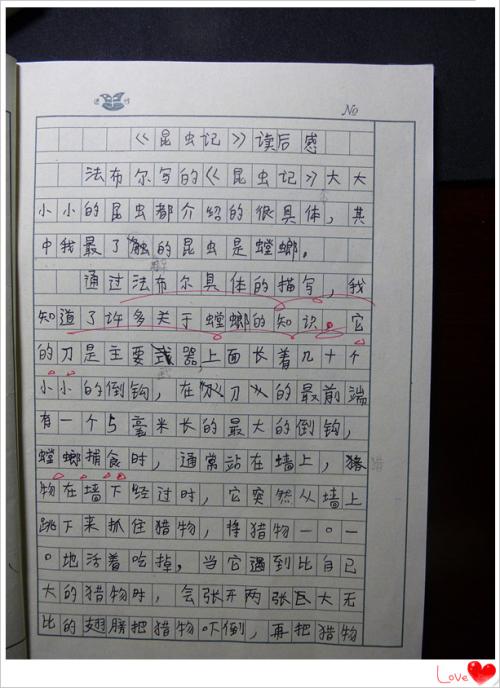 No
《昆虫记》读后感
法布尔写的《昆虫记》大大
小小的昆虫都介绍的很具体，其
中我最了解的昆虫是螳螂。
通过法布尔具体的描写，我
知道了许多关于螳螂的知识。它
的刀是主要武器，上面长着几十个
小小的倒钩，在“刀”的最前端
有一个5毫米长的最大的倒钩，
螳螂捕食时，通常站在墙上，猪
物在墙下经过时，它突然从墙上
跳下来抓住猎物，将猎物一口一
口地活着吃掉。当它遇到比自己
大的猎物时，会张开两张巨大无
比的翅膀把猎物吓倒，再把猎物
Love